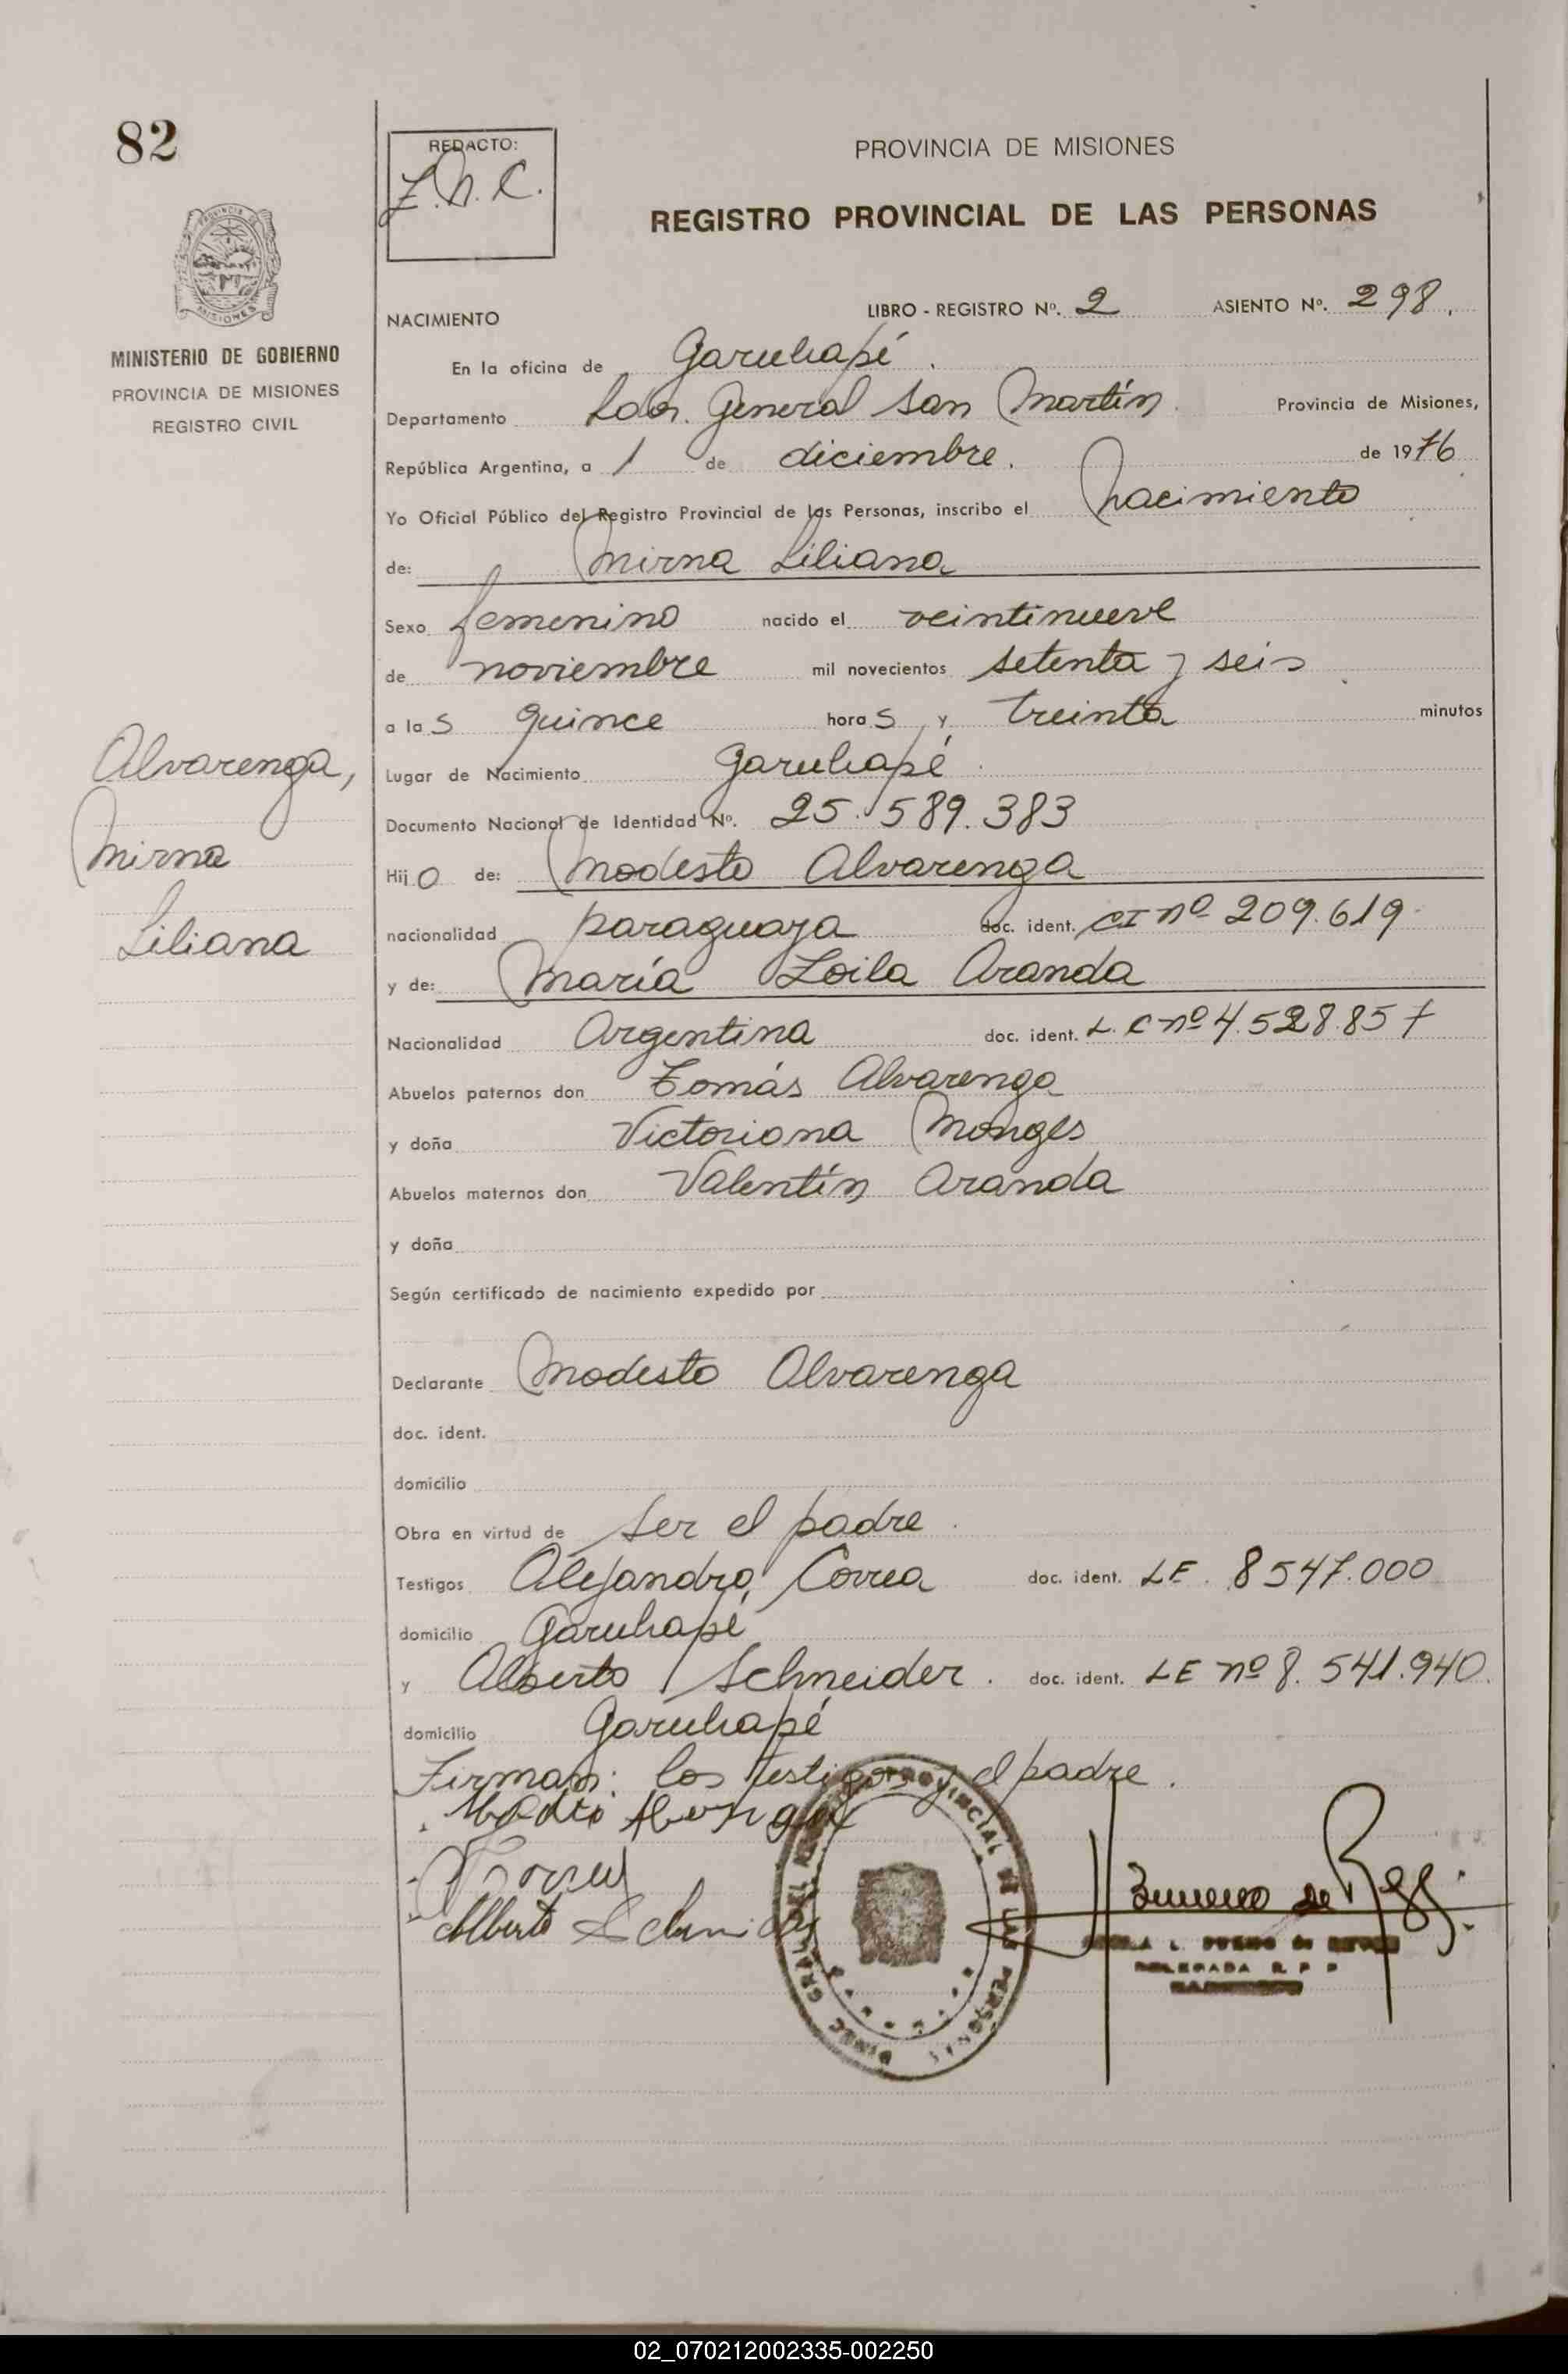 82
REDACTO:
Z.N.C.
PROVINCIA DE MISIONES
REGISTRO PROVINCIAL DE LAS PERSONAS
MINISTERIO DE GOBIERNO
PROVINCIA DE MISIONES
REGISTRO CIVIL
NACIMIENTO LIBRO - REGISTRO Nº. 2 ASIENTO Nº. 298.
En la oficina de Garuhapé.
Departamento Ldor. General San Martín. Provincia de Misiones,
República Argentina, a 1 de diciembre. de 1976
Yo Oficial Público del Registro Provincial de las Personas, inscribo el nacimiento
de: Mirna Liliana
Sexo femenino nacido el veintinueve
de noviembre mil novecientos setenta y seis
a las quince horas y treinta minutos
Lugar de Nacimiento Garuhapé.
Documento Nacional de Identidad Nº. 25.589.383
Alvarenga,
Mirna
Liliana
Hijo de: Modesto Alvarenga
nacionalidad paraguaya doc. ident. CI nº 209.619
y de: María Zoila Aranda
Nacionalidad Argentina doc. ident. L.C nº 4.528.857
Abuelos paternos don Tomás Alvarenga
y doña Victoriana Monges
Abuelos maternos don Valentín Aranda
y doña
Según certificado de nacimiento expedido por
Declarante Modesto Alvarenga
doc. ident.
domicilio
Obra en virtud de ser el padre.
Testigos Alejandro Correa doc. ident. LE. 8547.000
domicilio Garuhapé
y Alberto Schneider. doc. ident. LE nº 8.541.940.
domicilio Garuhapé
Firman: los testigos y el padre.
Alberto Schneider
PROVINCIAL DE LAS PERSONAS
DELEGADA R. P. P.
02_070212002335-002250